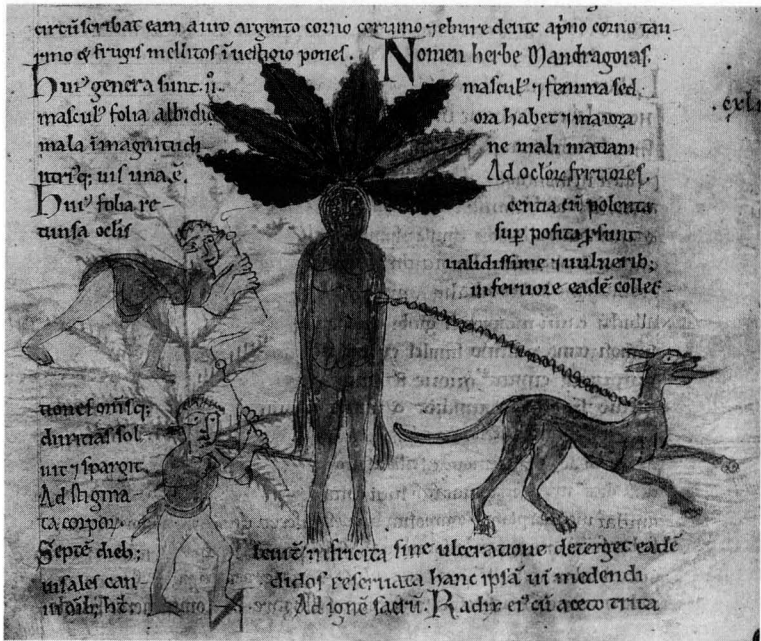 circūscribat eam auro argento cornio ceruino ⁊ ebure dente aprīo cornio tau-
rino & frugis mellitos ī uestigio pones. Nomen herbe Mandragoras.
Hui⁹ genera sunt .ii. mascul⁹ ⁊ femina sed
mascul⁹ folia albidio ora habet ⁊ maiora
mala ī magnitudi ne mali matiani
utriq; uis una ē. Ad oclor̄ feruores.
Hui⁹ folia re centia cū polenta
tunsa oclis sup posita psunt
ualidissime ⁊ uulnerib;
in feruore eadē collec-
tione omīsq;
duritias sol-
uit ⁊ spargit.
Ad stigma
ta corpor
Septē dieb; leuit̄ infricata sine ulceratione deterget eadē
uisales can- didos reseruata hanc ipsā uī medendi
Ad ignē sacrū. Radix ei⁹ cū aceto trita